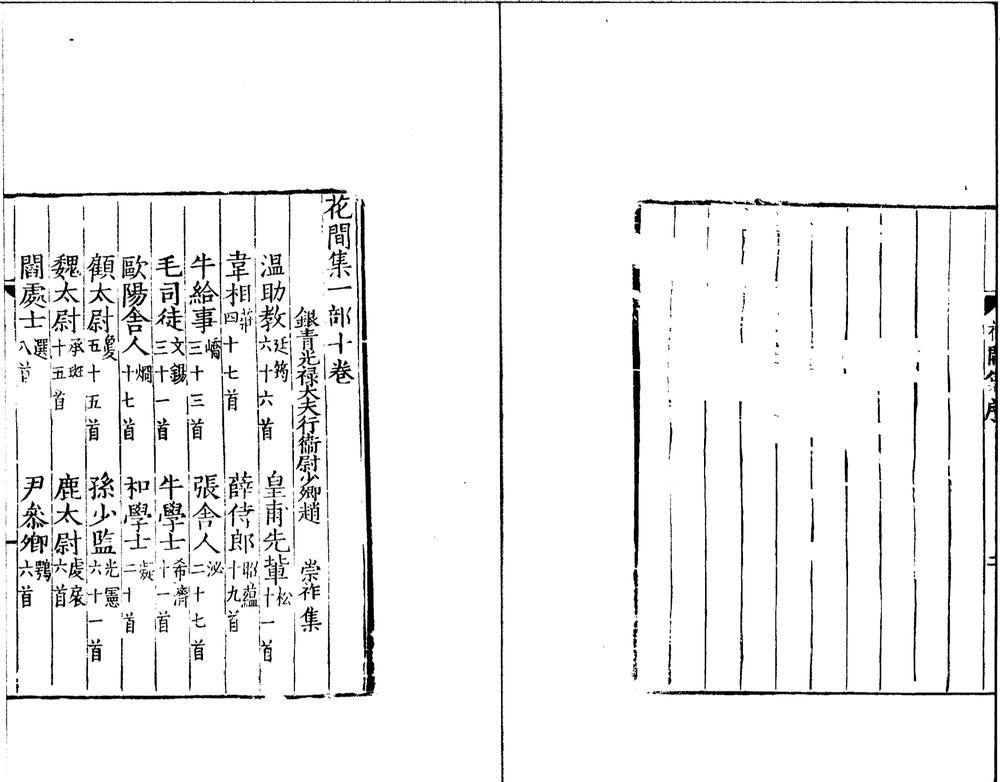 花間集序
二
花間集一部十卷
銀青光禄大夫行衛尉少卿趙 崇祚集
温助教廷筠六十六首 皇甫先輩松十一首
韋相莊四十七首 薛侍郎昭蘊十九首
牛給事嶠三十三首 張舍人泌二十七首
毛司徒文錫三十一首 牛學士希濟十一首
歐陽舎人烱十七首 和學士凝二十首
顧太尉敻五十五首 孫少監光憲六十一首
魏太尉承班十五首 鹿太尉虔扆六首
閻處士選八首 尹叅卿鶚六首